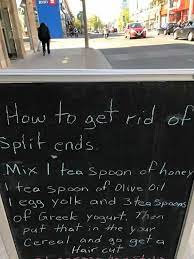 How to get rid of
split ends.
Mix 1 tea spoon of honey
1 tea spoon of Olive Oil
1 egg yolk and 3 tea spoons
of Greek yogurt. Then
put that in the your
Cereal and go get a
Hair cut